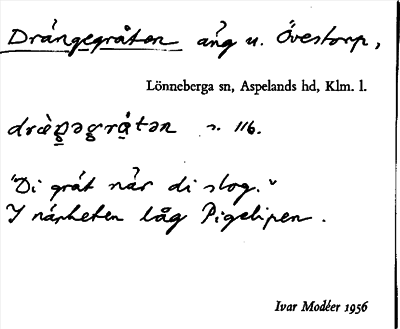 Drängegråten äng u. Övestorp,
Lönneberga sn, Aspelands hd, Klm. l.
dræ̀ŋəgrå̱tən s. 116.
"Di grät när di slog."
I närheten låg Pigelipen.
Ivar Modéer 1956